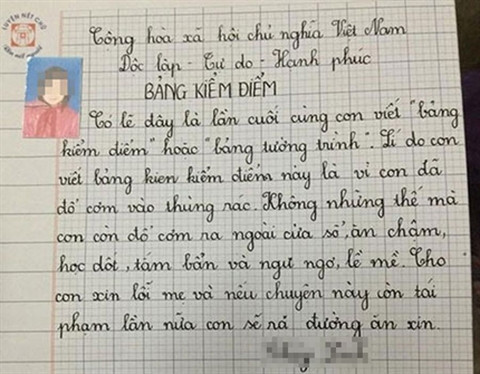 LUYỆN NÉT CHỮ
Công hòa xã hôi chủ nghĩa Viêt Nam
Dôc lâp - Tư do - Hanh phúc
BẢNG KIỂM ĐIỂM
Có lẽ dây là lần cuối cùng con viết "bảng
kiểm diểm" hoăc "bảng tường trình". Lí do con
viết bảng kien kiểm diểm này là vì con đã
đổ cơm vào thùng rac. Không những thế mà
con còn đổ cơm ra ngoài cửa sổ, ăn châm,
hoc dốt, tắm bẩn và ngu ngơ, lề mề. Cho
con xin lỗi me và nếu chuyên này còn tái
pham lần nữa con sẽ rả đường ăn xin.